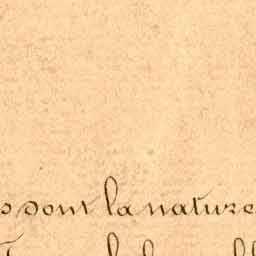 s sont la nature